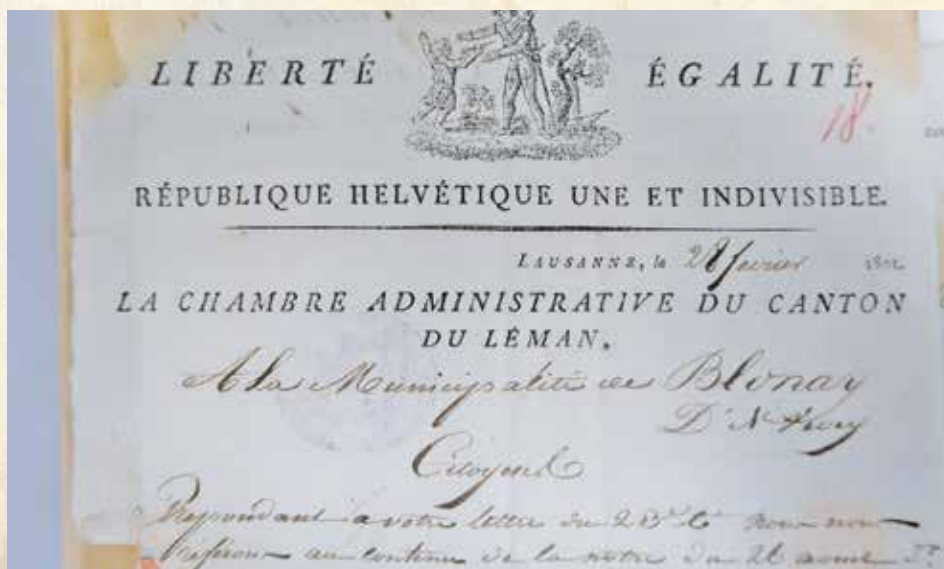 LIBERTÉ ÉGALITÉ.
18.
RÉPUBLIQUE HELVÉTIQUE UNE ET INDIVISIBLE.
LAUSANNE, le 28 fevrier
LA CHAMBRE ADMINISTRATIVE DU CANTON
DU LÉMAN,
A la Municipalité de Blonay
Citoyens
Repondant a votre lettre du nous nous
au contenu de la notre du